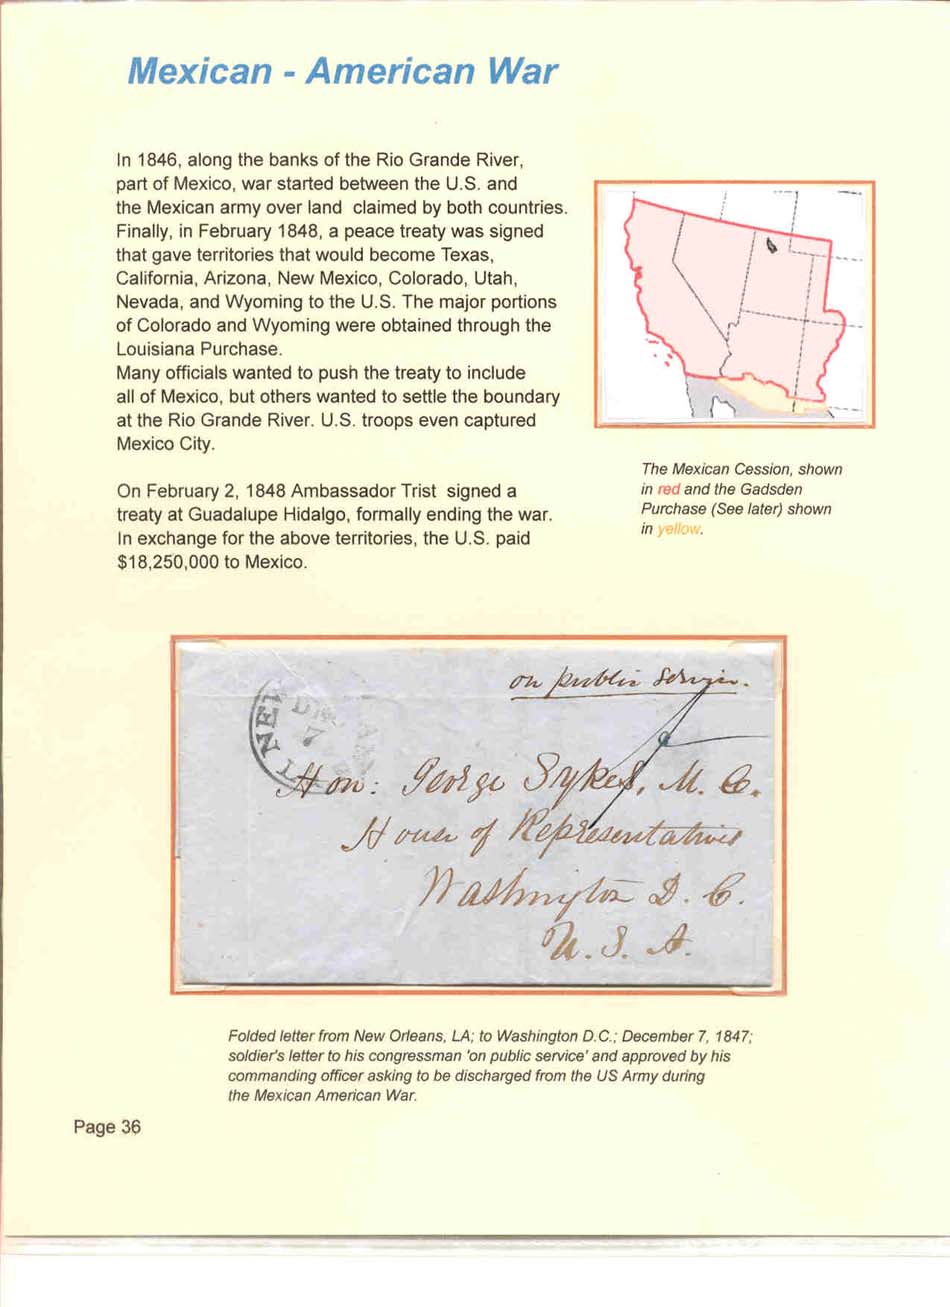 Mexican - American War
In 1846, along the banks of the Rio Grande River,
part of Mexico, war started between the U.S. and
the Mexican army over land claimed by both countries.
Finally, in February 1848, a peace treaty was signed
that gave territories that would become Texas,
California, Arizona, New Mexico, Colorado, Utah,
Nevada, and Wyoming to the U.S. The major portions
of Colorado and Wyoming were obtained through the
Louisiana Purchase.
Many officials wanted to push the treaty to include
all of Mexico, but others wanted to settle the boundary
at the Rio Grande River. U.S. troops even captured
Mexico City.
On February 2, 1848 Ambassador Trist signed a
treaty at Guadalupe Hidalgo, formally ending the war.
In exchange for the above territories, the U.S. paid
$18,250,000 to Mexico.
The Mexican Cession, shown
in red and the Gadsden
Purchase (See later) shown
in yellow.
on public service.
DEC
7
Hon: George Sykes, M. C.
House of Representatives
Washington D. C.
U. S. A.
Folded letter from New Orleans, LA; to Washington D.C.; December 7, 1847;
soldier's letter to his congressman 'on public service' and approved by his
commanding officer asking to be discharged from the US Army during
the Mexican American War.
Page 36